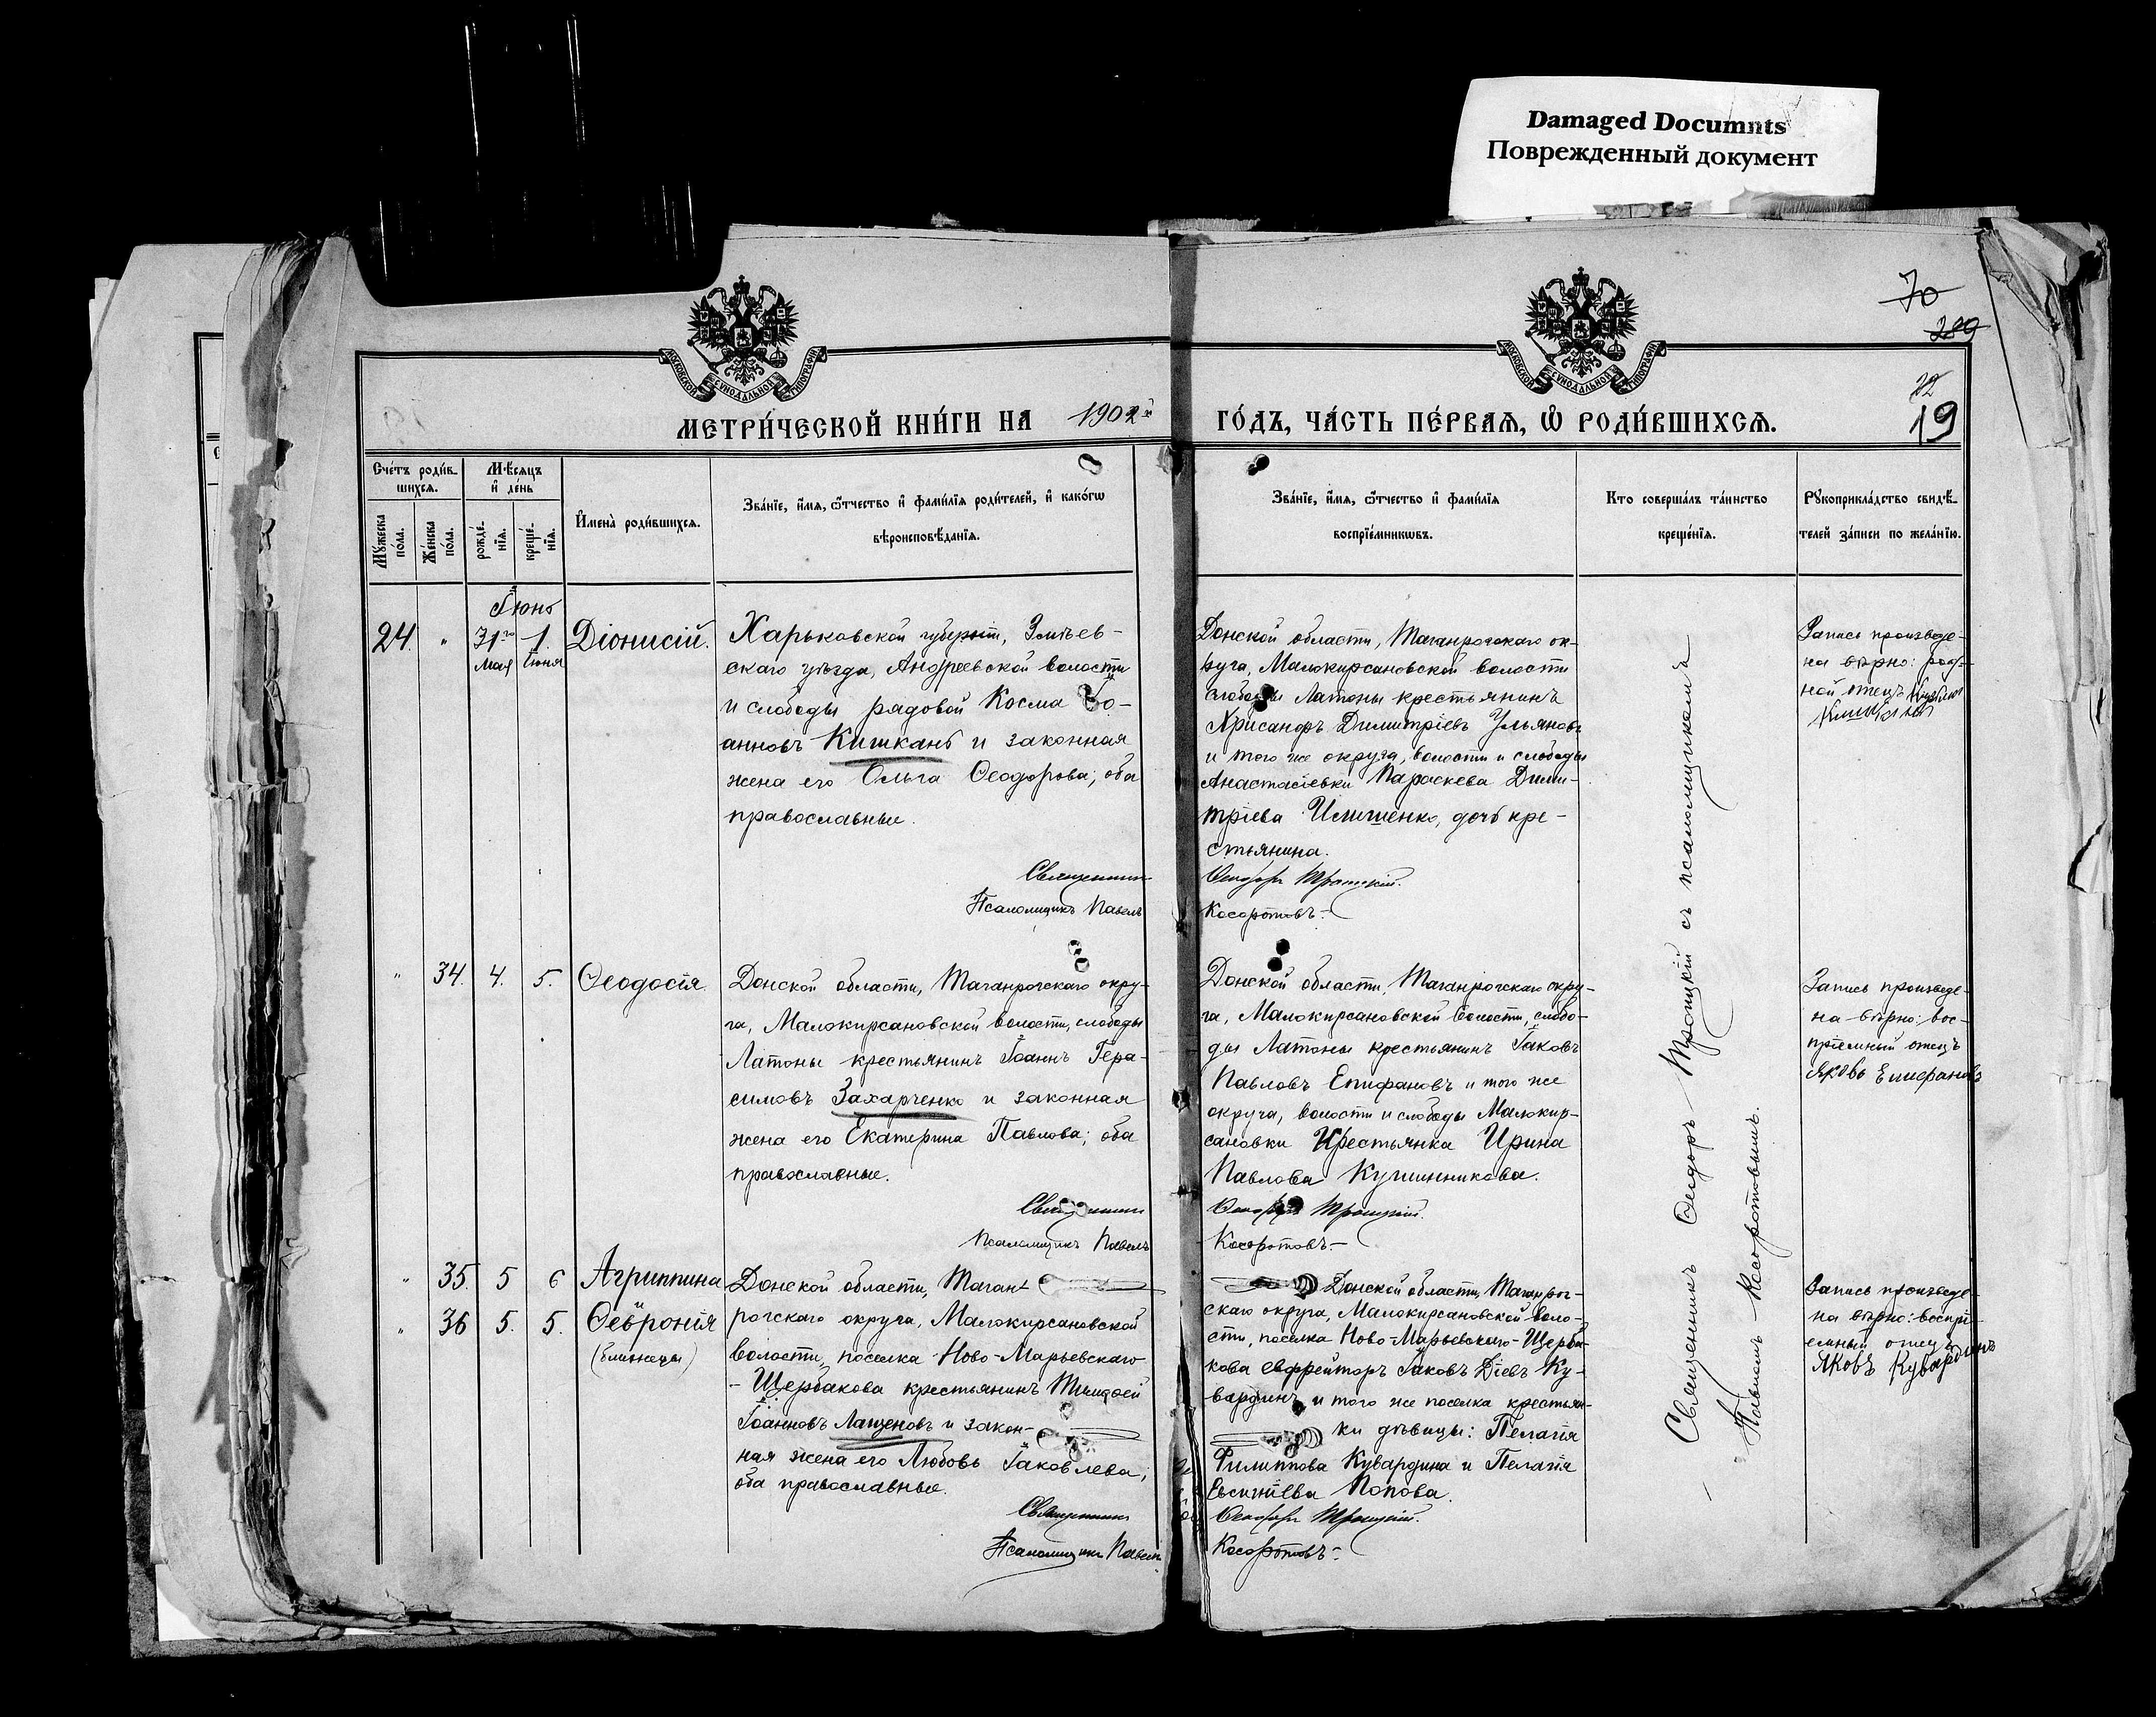 Damaged Documnts
Поврежденный документ
70
289
22
19
МОСКОВСКОЙ СѴНОДАЛЬНОЙ ТИПОГРАФІИ
МОСКОВСКОЙ СѴНОДАЛЬНОЙ ТИПОГРАФІИ
МЕТРИ́ЧЕСКОЙ КНИ́ГИ НА 1902й
ГО́ДЪ, ЧА́СТЬ ПЕ́РВАѦ, Ѡ҆ РОДИ́ВШИХСѦ.
Сче́тъ роди́в-
шихсѧ.
Мѣ́сѧцъ
и҆ де́нь
Мꙋ́жеска по́ла.
Же́нска по́ла.
рожде́-
нїѧ.
креще́-
нїѧ.
И҆мена̀ роди́вшихсѧ.
Зва́нїе, и҆́мѧ, ѻ҆́тчество и҆ фами́лїѧ роди́телей, и҆ како́гѡ
вѣроисповѣ́данїѧ.
Зва́нїе, и҆́мѧ, ѻ҆́тчество и҆ фами́лїѧ
воспрїе́мникѡвъ.
Кто̀ соверша́лъ та́инство
креще́нїѧ.
Рꙋкоприкла́дство свидѣ́-
телей за́писи по жела́нїю.
Іюнь
24. " 31го 1. Діонисій.
Мая Іюня
Харьковской губерніи, Зміев-
скаго уѣзда, Андреевской волости
и слободы рядовой Косма Іо-
анновъ Кишкань и законная
жена его Ольга Ѳеодорова; оба
православные.
Священникъ
Псаломщикъ Павелъ
Донской области, Таганрогскаго ок-
руга, Малокирсановской волости
слободы Латоны крестьянинъ
Хрисанфъ Димитріевъ Ульяновъ
и того же округа, волости и слободы
Анастасіевки Параскева Дими-
тріева Илишенко, дочь кре-
стьянина.
Ѳеодоръ Троицкій.
Косоротовъ.
Запись произведе-
на вѣрно: род-
ной отецъ
" 34. 4. 5. Ѳеодосія.
Донской области, Таганрогскаго окру-
га, Малокирсановской волости, слободы
Латоны крестьянинъ Іоаннъ Гера-
симовъ Захарченко и законная
жена его Екатерина Павлова; оба
православные.
Священникъ
Псаломщикъ Павелъ
Донской области, Таганрогскаго окру-
га, Малокирсановской волости, слобо-
ды Латоны крестьянинъ Іаковъ
Павловъ Епифановъ и того же
округа, волости и слободы Малокир-
сановки Крестьянка Ирина
Павлова Кушинникова.
Ѳеодоръ Троицкій.
Косоротовъ.
Запись произведе-
на вѣрно: вос-
пріемный отецъ
Яковъ Епифановъ
" 35. 5 6 Агриппина
" 36 5. 5. Ѳеѵронія
(близнецы)
Донской области, Таган-
рогскаго округа, Малокирсановской
волости, поселка Ново-Марьевскаго-
- Щербакова крестьянинъ Тимоѳей
Іоанновъ Лащеновъ и закон-
ная жена его Любовь Іаковлева;
оба православные.
Священникъ
Псаломщикъ Павелъ
Донской области, Таганрог-
скаго округа, Малокирсановской воло-
сти, поселка Ново-Марьевскаго-Щерба-
кова ефрейторъ Іаковъ Діевъ Ку-
вардинъ и того же поселка крестьян-
ки дѣвицы: Пелагія
Филиппова Кувардина и Пелагія
Евсигніева Попова.
Ѳеодоръ Троицкій.
Косоротовъ.
Запись произведе-
на вѣрно: воспрі-
емный отецъ
Яковъ Кувардинъ
Священникъ Ѳеодоръ Троицкій съ псаломщикомъ
- Павломъ Косоротовымъ.